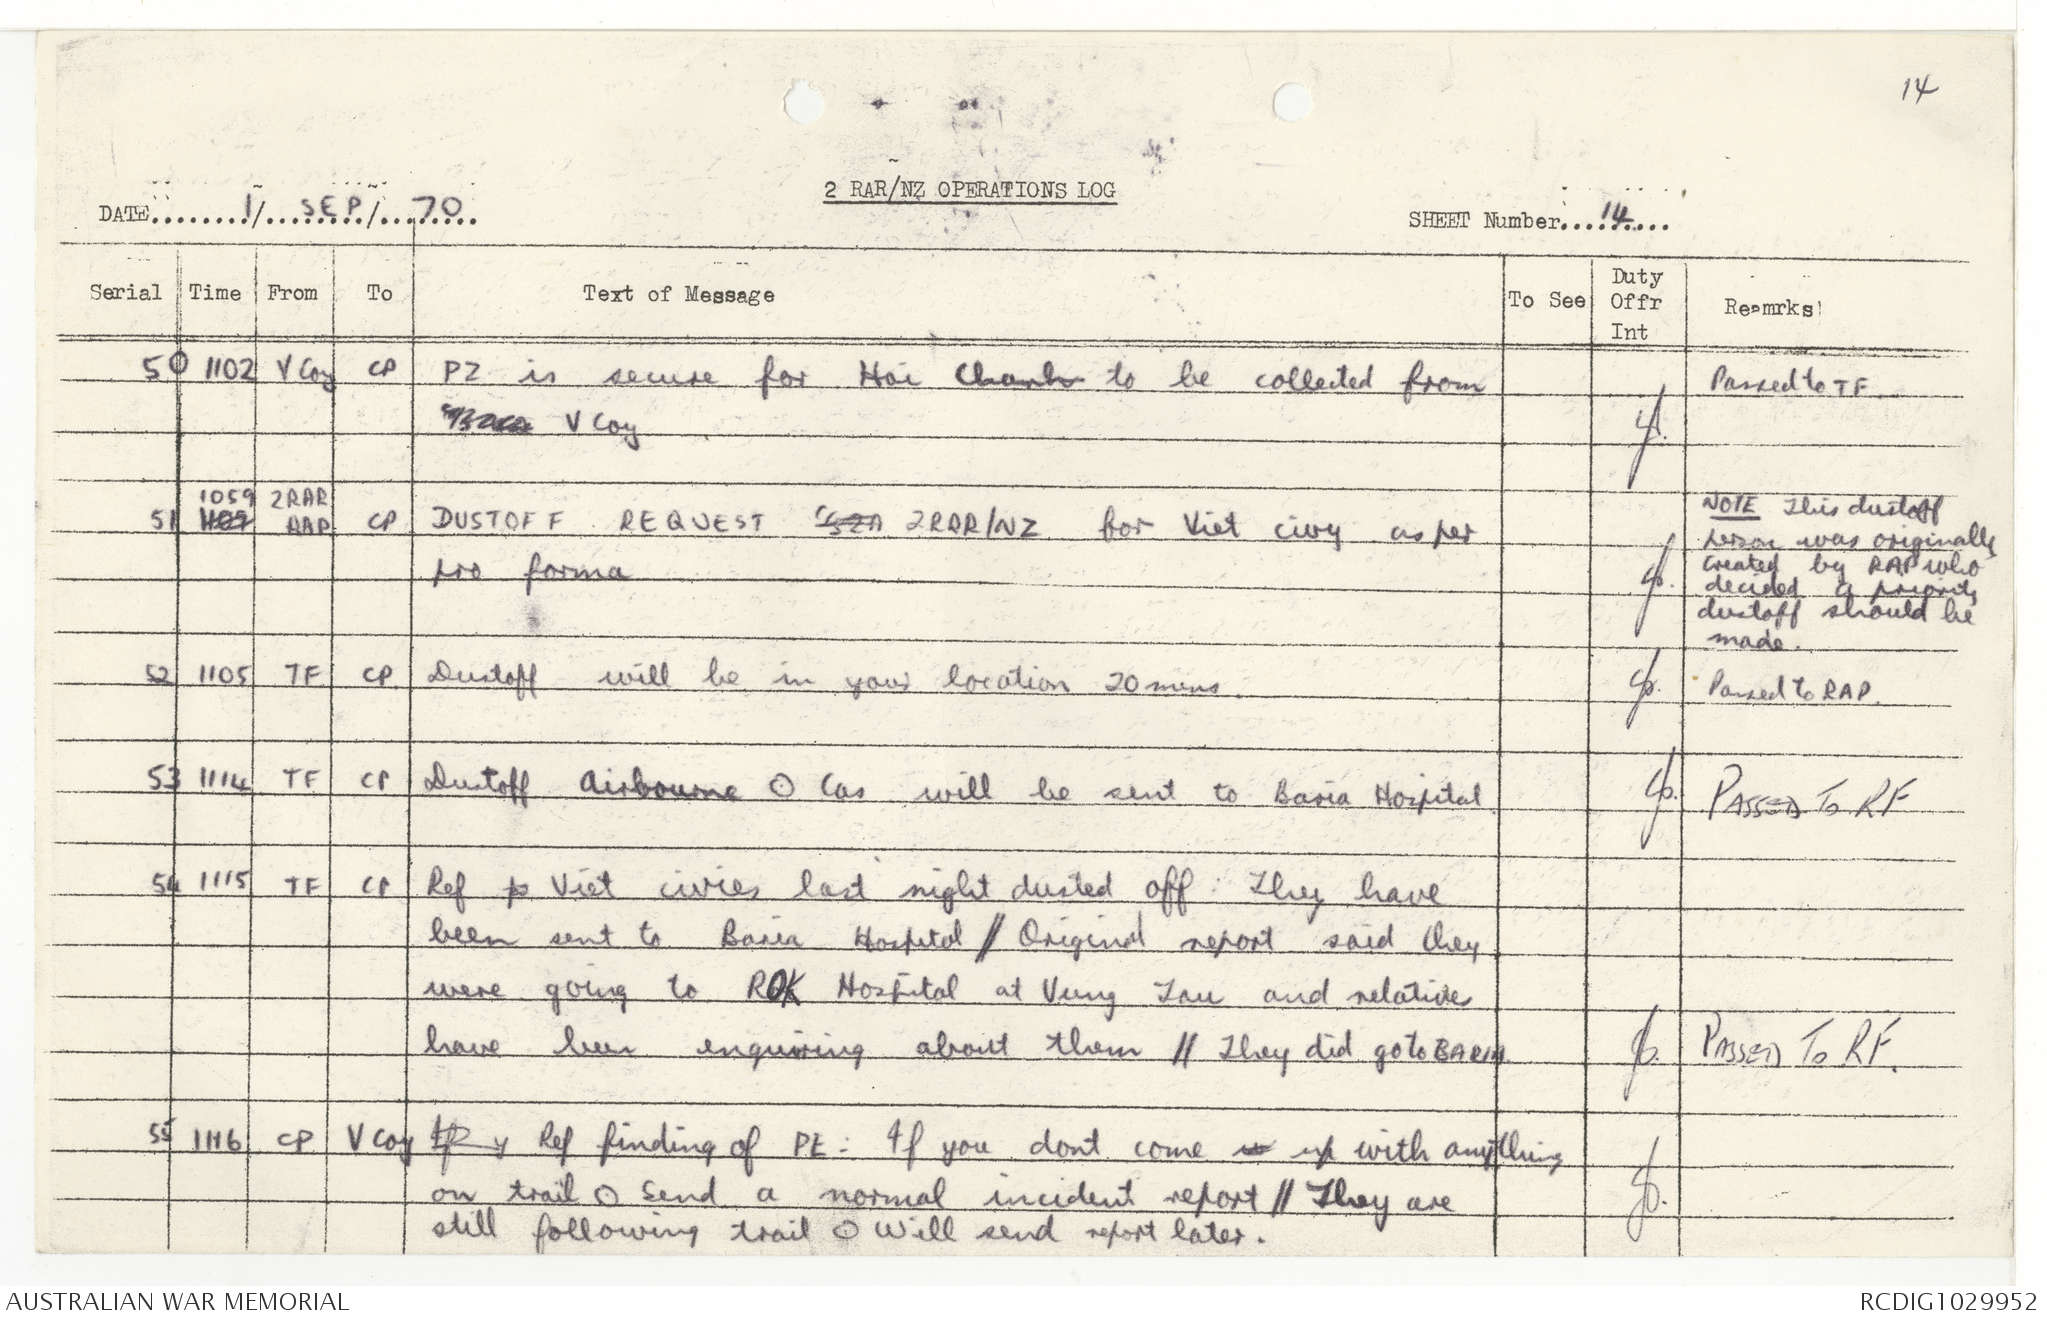 14
2 RAR/NZ OPERATIONS LOG
DATE........1/...SEP../...70....
SHEET Number....14....
Serial Time From To Text of Message To See Duty Offr Int Remrks
50 1102 V Coy CP PZ is secure for Hoi Chanh to be collected from Passed to TF
V Coy
1059 2RAR
51 1109 RAP CP DUSTOFF REQUEST 2RAR/NZ for Viet civy as per
pro forma
NOTE This dustoff
person was originally
created by RAP who
decided a priority
dustoff should be
made.
52 1105 TF CP Dustoff will be in your location 20 mins. Passed to RAP.
53 1114 TF CP Dustoff Airbourne O Cas will be sent to Baria Hospital PASSED TO RF
54 1115 TF CP Ref Viet civies last night dusted off : They have
been sent to Baria Hospital // Original report said they
were going to ROK Hospital at Vung Tau and relatives
have been enquiring about them // They did go to BARIA PASSED TO RF.
55 1116 CP V Coy Ref finding of PE : If you dont come up with anything
on trail O Send a normal incident report // They are
still following trail O Will send report later.
AUSTRALIAN WAR MEMORIAL RCDIG1029952